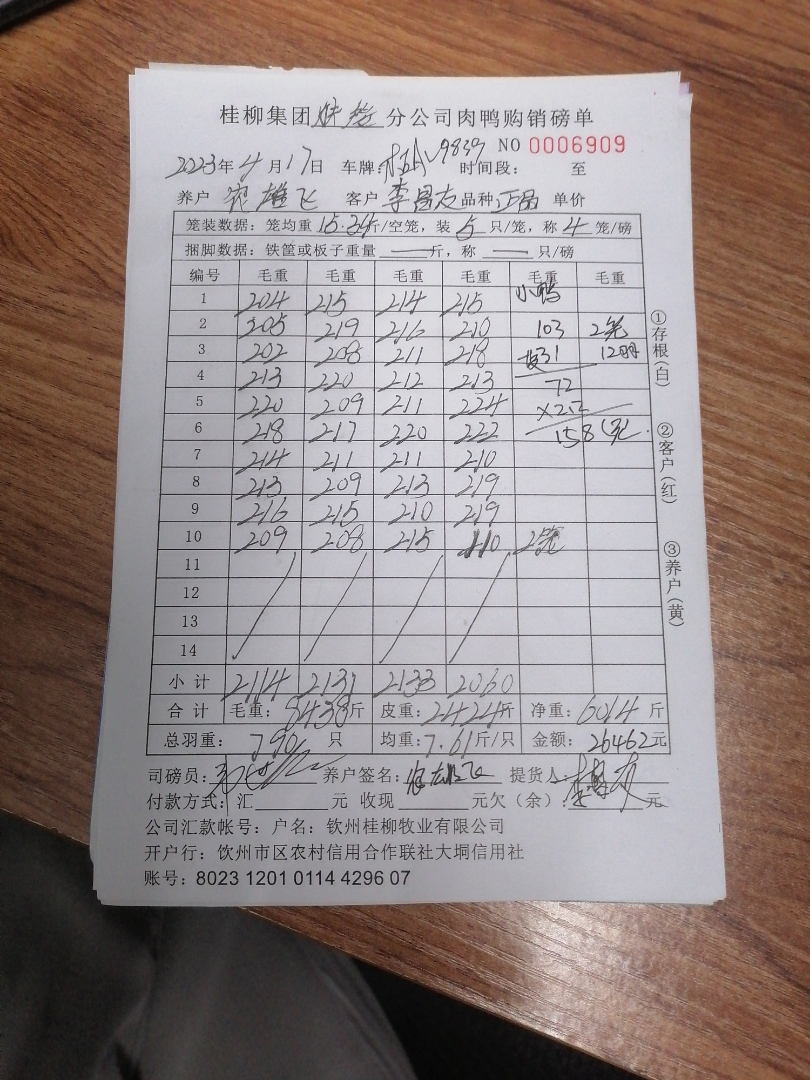 桂柳集团 分公司肉鸭购销磅单
NO 0006909
2023年4月17日 车牌: 9839 时间段: 至
养户 雄飞 客户 李昌友 品种 正品 单价
笼装数据: 笼均重 15.34斤/空笼, 装 5 只/笼, 称 4 笼/磅
捆脚数据: 铁筐或板子重量 —— 斤, 称 —— 只/磅
编号 毛重 毛重 毛重 毛重 毛重 毛重
1 204 215 214 215 小鸭
2 205 219 216 210 103 2笼
3 202 208 211 218 31 12只
4 213 220 212 213 72
5 220 209 211 224 ×2.2
6 218 217 220 222 158元.
7 214 211 211 210
8 213 209 213 219
9 216 215 210 219
10 209 208 215 110 2笼
11
12
13
14
小计 2114 2131 2133 2060
合计 毛重: 8438斤 皮重: 2424斤 净重: 6014 斤
总羽重: 790 只 均重: 7.61斤/只 金额: 26462元
司磅员: 养户签名: 提货人: 李昌友
付款方式: 汇 元 收现 元欠(余): 元
公司汇款帐号: 户名: 钦州桂柳牧业有限公司
开户行: 钦州市区农村信用合作联社大垌信用社
账号: 8023 1201 0114 4296 07
①存根(白)
②客户(红)
③养户(黄)